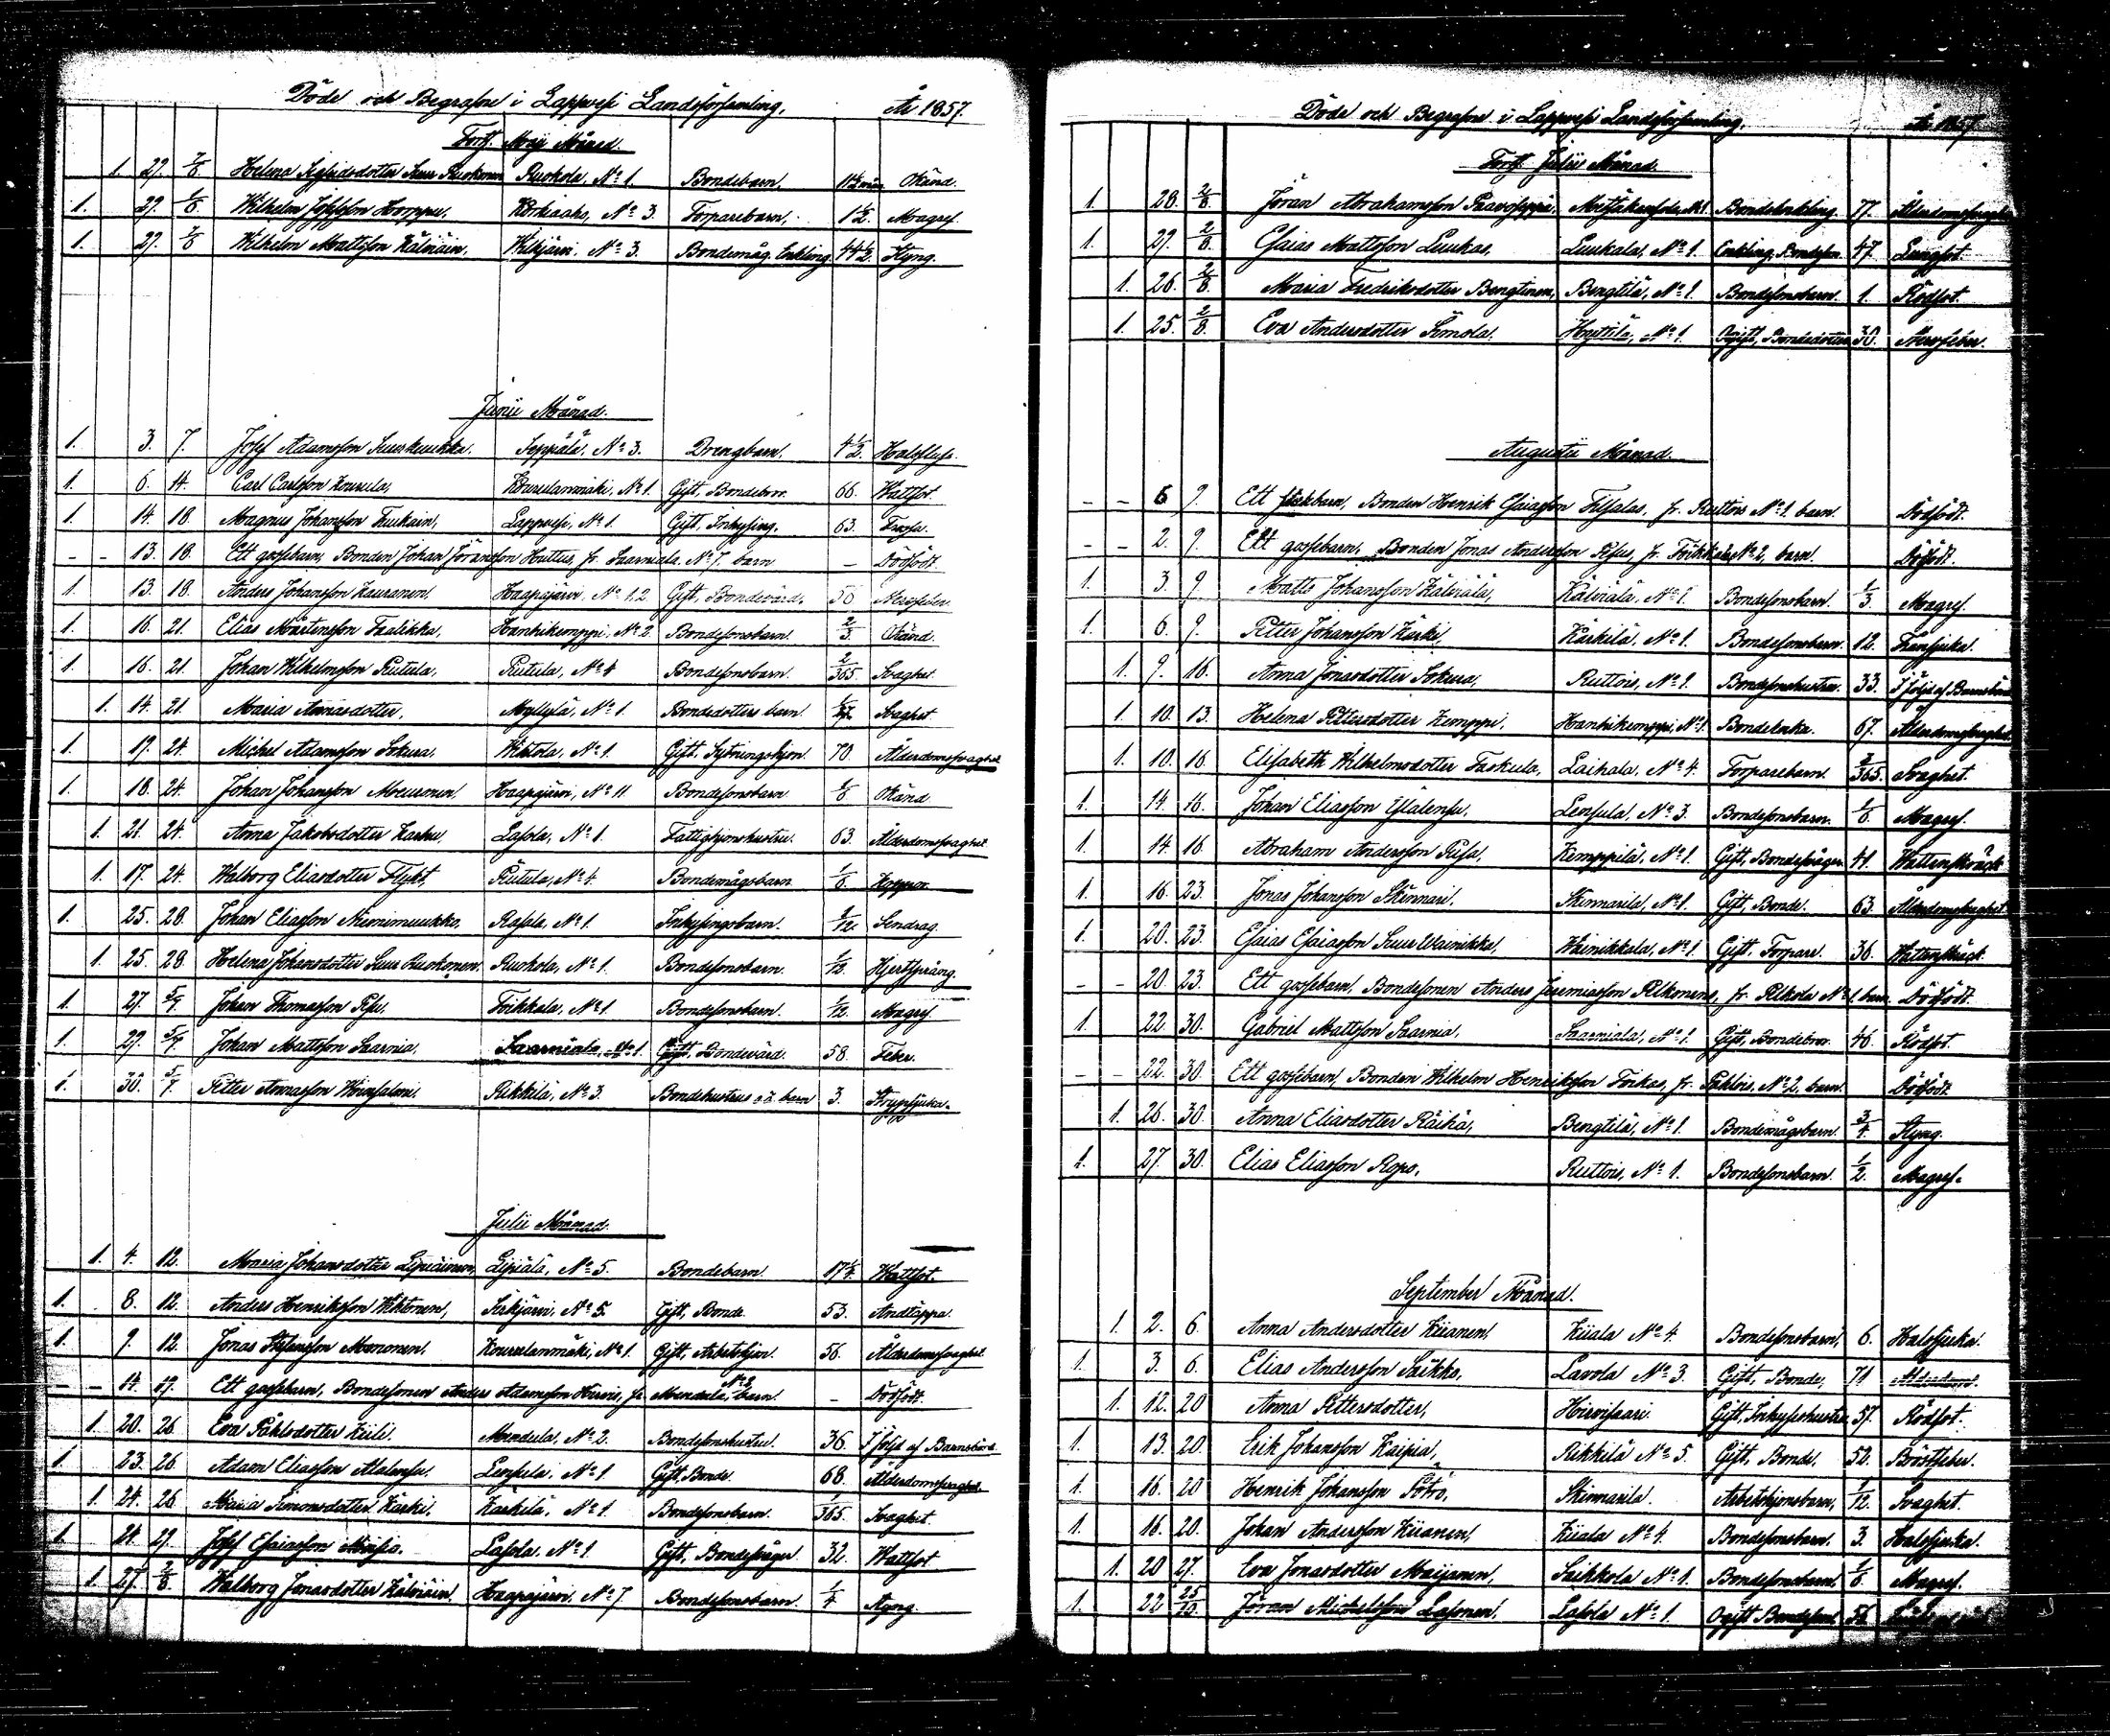 Döde och Begrafne i Lappvesi Landsförsamling. År 1857.
Forts. Maji Månad.
1. 29. 7/6 Helena Sigfridsdotter Suur Ruokonen Ruokola, No 1. Bondebarn. Okänd.
1. 29. 1/6. Wilhelm Josefsson Horppu, Korkiaaho, No 3. Torparebarn, 1 1/2. Magref.
1. 27. 7/6 Wilhelm Mattsson Kälviäin, Wilkjärvi, No 3. Bondemåg, Enkling 44 1/2. Styng.
Junii Månad.
1. 3. 7. Josef Adamsson Suurkuukka. Seppälä, No 3. Drengbarn. 4 1/2. Halsfluss.
1. 6. 14. Carl Carlsson Kousula, Kouselanmäki, No 1. Gift, Bondebror. 66. Wattsot.
1. 14. 18. Magnus Johansson Tuukain, Lappvesi, No 1. Gift, Inhysing. 63. Frossa.
– – 13. 18. Ett gossebarn, Bonden Johan Göransson Huttus, fr. Saarniala No 7. barn – Dödfödt.
1. 13. 18. Anders Johansson Kauranen. Haapajärvi, No 1,2 Gift, Bondevärd. 50 Nervfeber.
1. 16. 21. Elias Mårtensson Taalikka, Hanhikemppi, No 2. Bondesonsbarn. 2/3. Okänd.
1. 16. 21. Johan Wilhelmsson Rutula, Rutula, No 4 Bondesonsbarn. 2/365. Svaghet.
1. 14. 21. Maria Annasdotter, Myllylä, No 1. Bondedotters barn. Svaghet.
1. 19. 24. Michel Adamsson Sokura. Wihtola, No 1. Gift, Sytningshjon. 70. Ålderdomssvaghet.
1. 18. 24. Johan Johansson Mourunen. Haapajärvi, No 11 Bondesonsbarn 1/6 Okänd
1. 21. 24. Anna Jakobsdotter Karhu, Lasola, No 1. Fattighjonshustru. 63. Ålderdomssvaghet.
1. 17. 24. Walborg Eliasdotter Flykt, Rutula, No 4. Bondemågsbarn. 1/6. Koppor.
1. 25. 28. Johan Eliasson Niemimuukko. Rasala, No 1. Inhysingsbarn. 1/12. Sendrag.
1. 25. 28. Helena Johansdotter Suur Ruokonen. Ruokola, No 1. Bondesonsbarn. 1/12. Hjertsprång.
1. 27. 5/7. Johan Thomasson Pysy. Toikkala, No 1. Bondesonsbarn. 1/12. Magref.
1. 29. 5/7. Johan Mattsson Saarnia. Saarniala, No 1. Gift, Bondevärd. 58. Feber.
1. 30. 5/7. Petter Annasson Woinsalmi. Rikkilä, No 3. Bondehustrus o.ä. barn 3. Strypsjuka.
Julii Månad.
1. 4. 12. Maria Johansdotter Lipiäinen, Lipiälä, No 5. Bondebarn. Wattsot.
1. 8. 12. Anders Henriksson Wihtonen, Sirkjärvi, No 5. Gift, Bonde. 53. Andtäppa.
1. 9. 12. Jonas Stefansson Mononen. Kouselanmäki, No 1. Gift, Arbetshjon. 56. Ålderdomssvaghet.
– – 14. 19. Ett gossebarn, Bondesonen Anders Adamsson Hirvis, fr. Mundula, No 2, barn. – Dödfödt.
1. 20. 26. Eva Påhlsdotter Kiili. Mundula, No 2. Bondesonshustru. 36. I följd af Barnsbörd.
1. 23. 26. Adam Eliasson Alalensu. Lensula, No 1. Gift, Bonde. 68. Ålderdomssvaghet.
1. 24. 26. Maria Simonsdotter Kärki. Kärkilä, No 1. Bondesonsbarn. 1/365. Svaghet.
1. 24. 29. Josef Esaiasson Lasola. No 1. Gift, Bondesvåger. 32. Wattsot
1. 27. 2/8. Walborg Jonasdotter Kälviäin. Haapajärvi, No 7. Bondesonsbarn. 1/4 Styng
Döde och Begrafne i Lappvesi Landsförsamling. År 1857.
Forts. Julii Månad.
1. 28. 2/8. Jöran Abrahamsson Paavoseppä, Bondeenkling. 77. Ålderdomssvaghet.
1. 29. 2/8. Esaias Mattsson Luukas, Luukala, No 1. Enkling, Bondeson. 47. Lungsot.
1. 26. 2/8. Maria Fredriksdotter Bengtinen, Bengtilä, No 1. Bondesonsbarn. 1. Rödsot.
1. 25. 2/8. Eva Andersdotter Simola. Hyttilä, No 1. Ogift, Bondedotter 30. Nervfeber.
Augusti Månad.
– – 6 9. Ett flickbarn, Bonden Henrik Esaiasson Filppalas, fr. Ruttois No 1. barn. Dödfödt.
– – 2. 9. Ett gossebarn, Bonden Jonas Andersson Pysys, fr. Toikkala No 2, barn. Dödfödt.
1. 3. 9. Matts Johansson Kälviälä, Kälviälä, No 1. Bondesonsbarn. 1/3. Magref.
1. 6. 9. Petter Johansson Kärki, Kärkilä, No 1. Bondesonsbarn. 12. Fransjuka.
1. 9. 16. Anna Jonasdotter Sokura, Ruttois, No 1. Bondesonshustru. 33. I följd af Barnsbörd
1. 10. 13. Helena Pettersdotter Kemppi, Hanhikemppi, No 1. Bondeenka. 67. Ålderdomssvaghet.
1. 10. 16. Elisabeth Wilhelmsdotter Taskula, Laihala, No 4. Torparebarn. Svaghet.
1. 14. 16. Johan Eliasson Ylälensu, Lensula, No 3. Bondesonsbarn. 1/6. Magref.
1. 14. 16. Abraham Andersson Pysy, Kemppilä, No 1. Gift, Bondesvåger. 41. Wattenskräck
1. 16. 23. Jonas Johansson Skinnari, Skinnarila, No 1. Gift, Bonde. 63. Ålderdomssvaghet
1. 20. 23. Esaias Esaiasson Suur Wainikka, Wainikkala, No 1. Gift, Torpare. 36. Wattenskräck.
– – 20. 23. Ett gossebarn, Bondesonen Anders Jeremiasson Pelkonens, fr. Pelkola No 1 barn. Dödfödt.
1. 22. 30. Gabriel Mattsson Saarnia, Saarniala, No 1. Gift, Bondebror. 46. Rödsot.
– – 22. 30. Ett gossebarn, Bonden Wilhelm Henriksson Toikas, fr. No 2, barn. Dödfödt.
1. 26. 30. Anna Eliasdotter Räihä, Bengtilä, No 1. Bondemågsbarn. 3/4. Styng.
1. 27. 30. Elias Eliasson Ropo, Ruttois, No 1. Bondesonsbarn. 1/2. Magref.
September Månad.
1. 2. 6. Anna Andersdotter Kiianen, Kiiala No 4. Bondesonsbarn, 6. Halssjuka.
1. 3. 6. Elias Andersson Saikko, Lavola No 3. Gift, Bonde, 71 Ålderdom.
1. 12. 20 Anna Pettersdotter, Hirvisaari. Gift, Inhyseshustru 57. Rödsot.
1. 13. 20. Erik Johansson Kaipia, Rikkilä No 5. Gift, Bonde. 52. Bröstfeber.
1. 16. 20 Henrik Johansson Skinnarila. Arbetshjonsbarn, 1/12. Svaghet.
1. 16. 20. Johan Andersson Kiianen, Kiiala No 4. Bondesonsbarn. 3. Halssjuka.
1. 20 27. Eva Jonasdotter Maijanen, Saikkola No 1. Bondesonsbarn. 1/6. Magref.
1. 22 25/10. Jöran Michelsson Lasonen. Lasola No 1. Ogift Bondeson, 56.